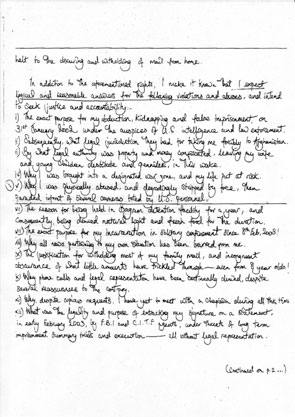 halt to the obscuring and withholding of mail from home.
In addition to the aforementioned rights, I make it known that I expect
logical and reasonable answers for the following violations and abuses, and intend
to seek justice and accountability:-
i) The exact purpose for my abduction, kidnapping and false imprisonment on
31st January 2002, under the auspices of U.S. intelligence and law enforcement.
ii) Subsequently, what legal jurisdiction they had for taking me forcibly to Afghanistan.
iii) By what legal authority was property and money confiscated, leaving my wife
and young children destitute and penniless, in this wake.
iv) Why I was brought into a designated war zone, and my life put at risk.
v) Why I was physically abused and degradingly stripped by force, then
paraded in front of several cameras toted by U.S. personnel.
vi) The reason for being held in Bagram detention facility for a year, and
consequently being denied natural light and fresh food for the duration.
vii) The exact purpose for my incarceration in solitary confinement since 8th Feb. 2003!
viii) Why all news pertaining to my own situation has been barred from me.
ix) The justification for withholding most of my family mail, and incongruent
obscurance of what little amounts have trickled through — even from 8 year olds!
x) Why phone calls and legal representation have been continually denied, despite
several reassurances to the contrary.
xi) Why, despite copious requests, I have yet to meet with a Chaplain during all this time.
xii) What was the legality and purpose of extracting my signature on a statement,
in early February 2003, by F.B.I and C.I.T.F agents, under threats of long term
imprisonment, summary trials and execution — all without legal representation.
(Continued on p.2...)